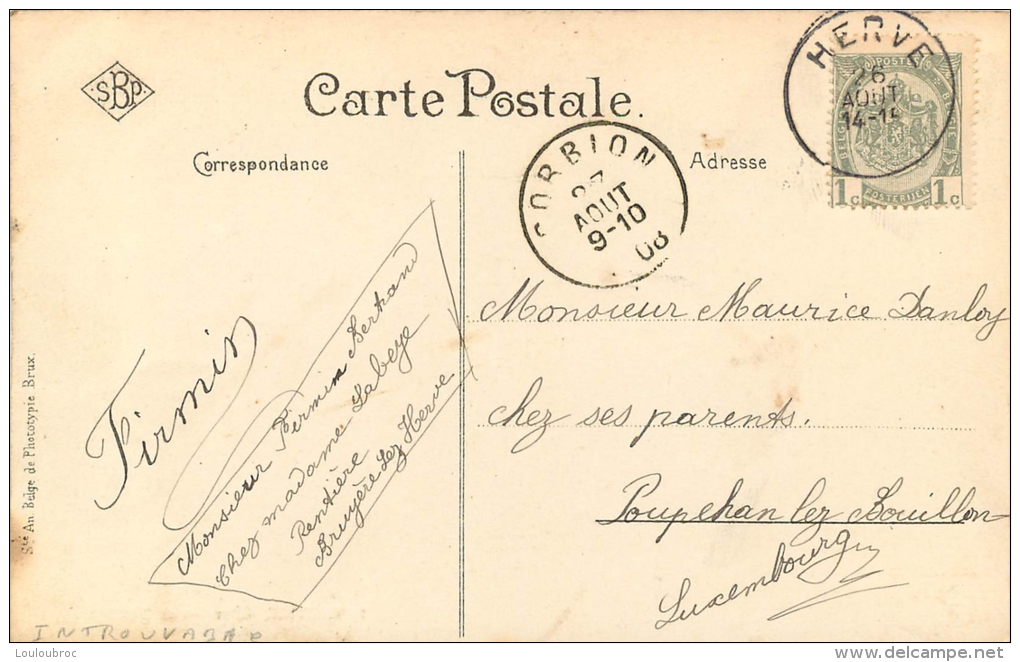 SBP
Carte Postale.
Correspondance
Adresse
HERVE
26
AOUT
14-15
POSTERIJEN
1c 1c
CORBION
27
AOUT
9-10
08
Monsieur Maurice Danloy
chez ses parents.
Poupehan lez Bouillon
Luxembourg
Firmin
Monsieur Firmin Bertrand
Chez madame Labeye
Rentière
Bruyère Lez Herve
Sté An. Belge de Phototypie Brux.
INTROUVABLE
Louloubroc